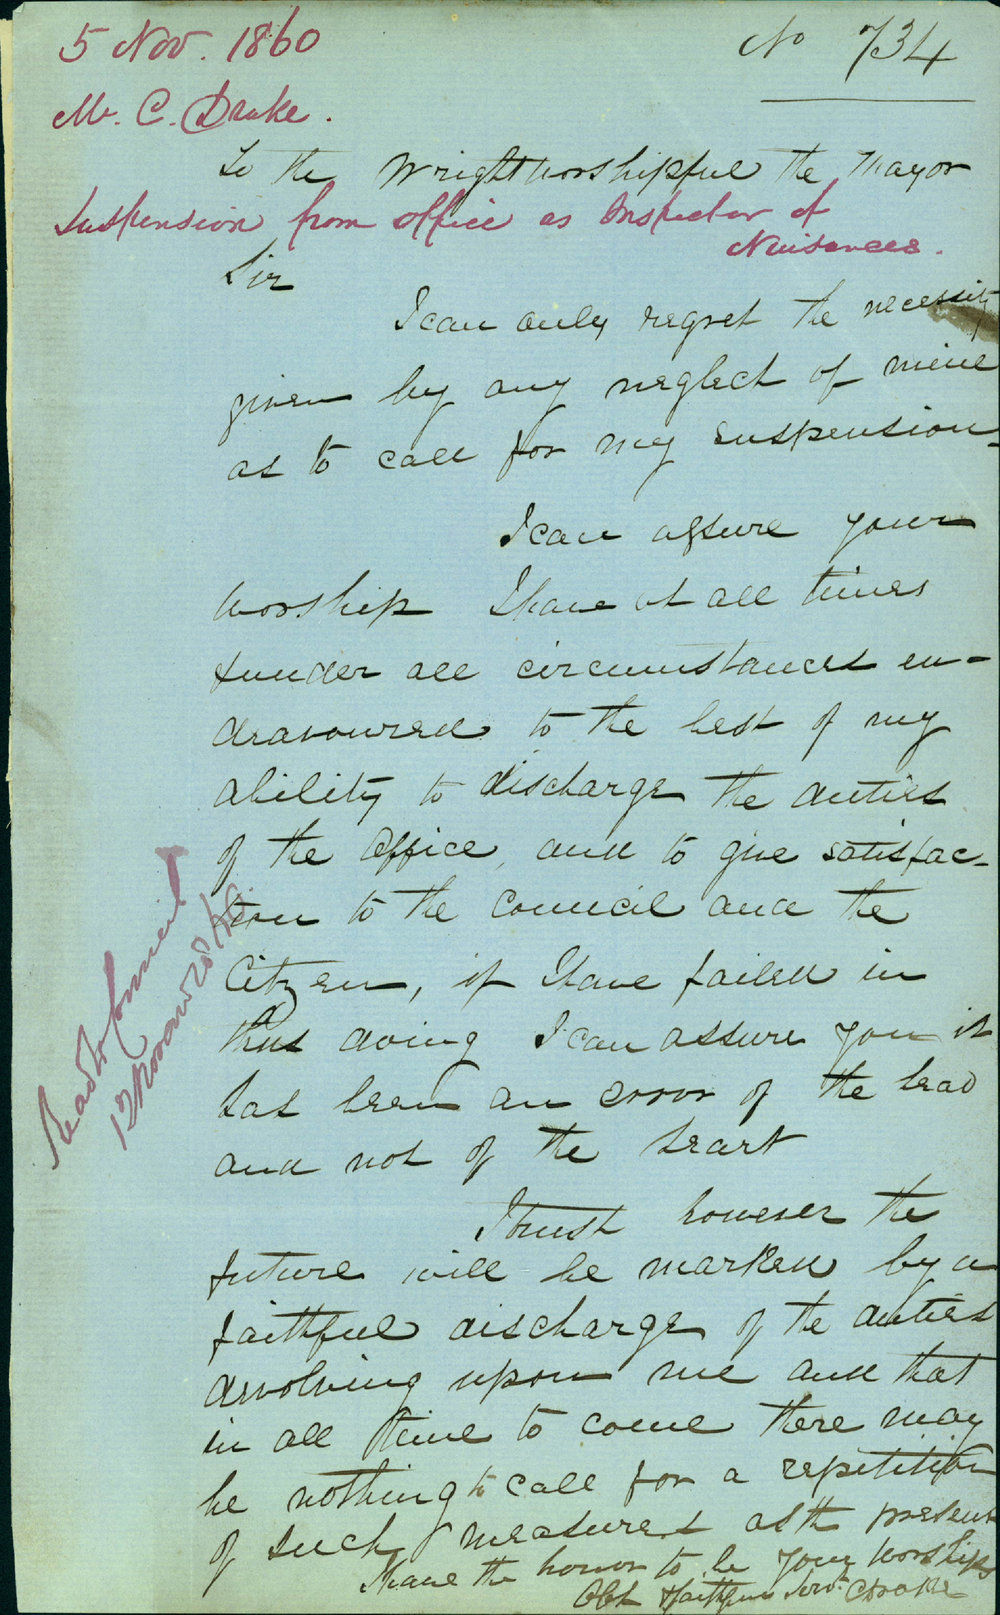 5 Nov. 1860
No 734
Mr. C. Drake.
To the Wrightworshipful the Mayor
Suspension from office as Inspector of
Nuisances.
Sir
I can only regret the necessity
given by any neglect of mine
as to call for my suspension
I can assure your
Worship I have at all times
& under all circumstances en-
deavoured to the best of my
ability to discharge the duties
of the office, and to give satisfac-
tion to the Council and the
Citizen, if I have failed in
thus doing I can assure you it
has been an error of the head
and not of the heart
I trust however the
future will be marked by a
faithful discharge of the duties
devolving upon me and that
in all time to come there may
be nothing to call for a repetition
of such measures as the present
I have the honor to be Your Worships
Obt Faithful Servt C Drake
Read to Council
12 Novr